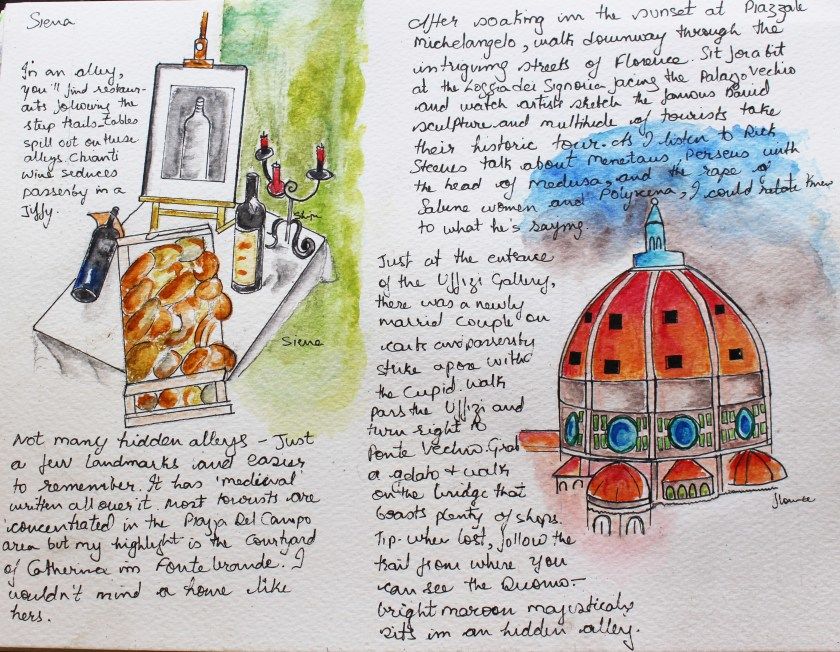 Siena
In an alley,
you'll find restaur-
ants following the
step trails. Tables
spill out on these
alleys. Chianti
wine seduces
passerby in a
Jiffy.
Siena
Not many hidden alleys - Just
a few landmarks and easier
to remember. It has 'medieval'
written all over it. Most tourists are
concentrated in the Piazza Del Campo
area but my highlight is the Courtyard
of Catherina in Fontebrande. I
wouldn't mind a home like
hers.
After soaking in the sunset at Piazzale
Michelangelo, walk downway through the
intriguing streets of Florence. Sit for a bit
at the Loggia dei Signoria facing the Palazo Vechio
and watch artist sketch the famous David
sculpture and multitude of tourists take
their historic tour. As I listen to Rick
Steeves talk about menetaus, Perseus with
the head of medusa, and the rape of
Sabine women and Polyxena, I could relate
to what he's saying.
Just at the entrance
of the Uffizi Gallery,
there was a newly
married couple on
strike a pose with
the Cupid. Walk
pass the Uffizi and
turn right to
Ponte Vechio. Grab
a gelato + walk
on the bridge that
boasts plenty of shops.
Tip- when lost, follow the
trail from where you
can see the Duomo-
bright maroon majestically
sits in an hidden alley.
Florence